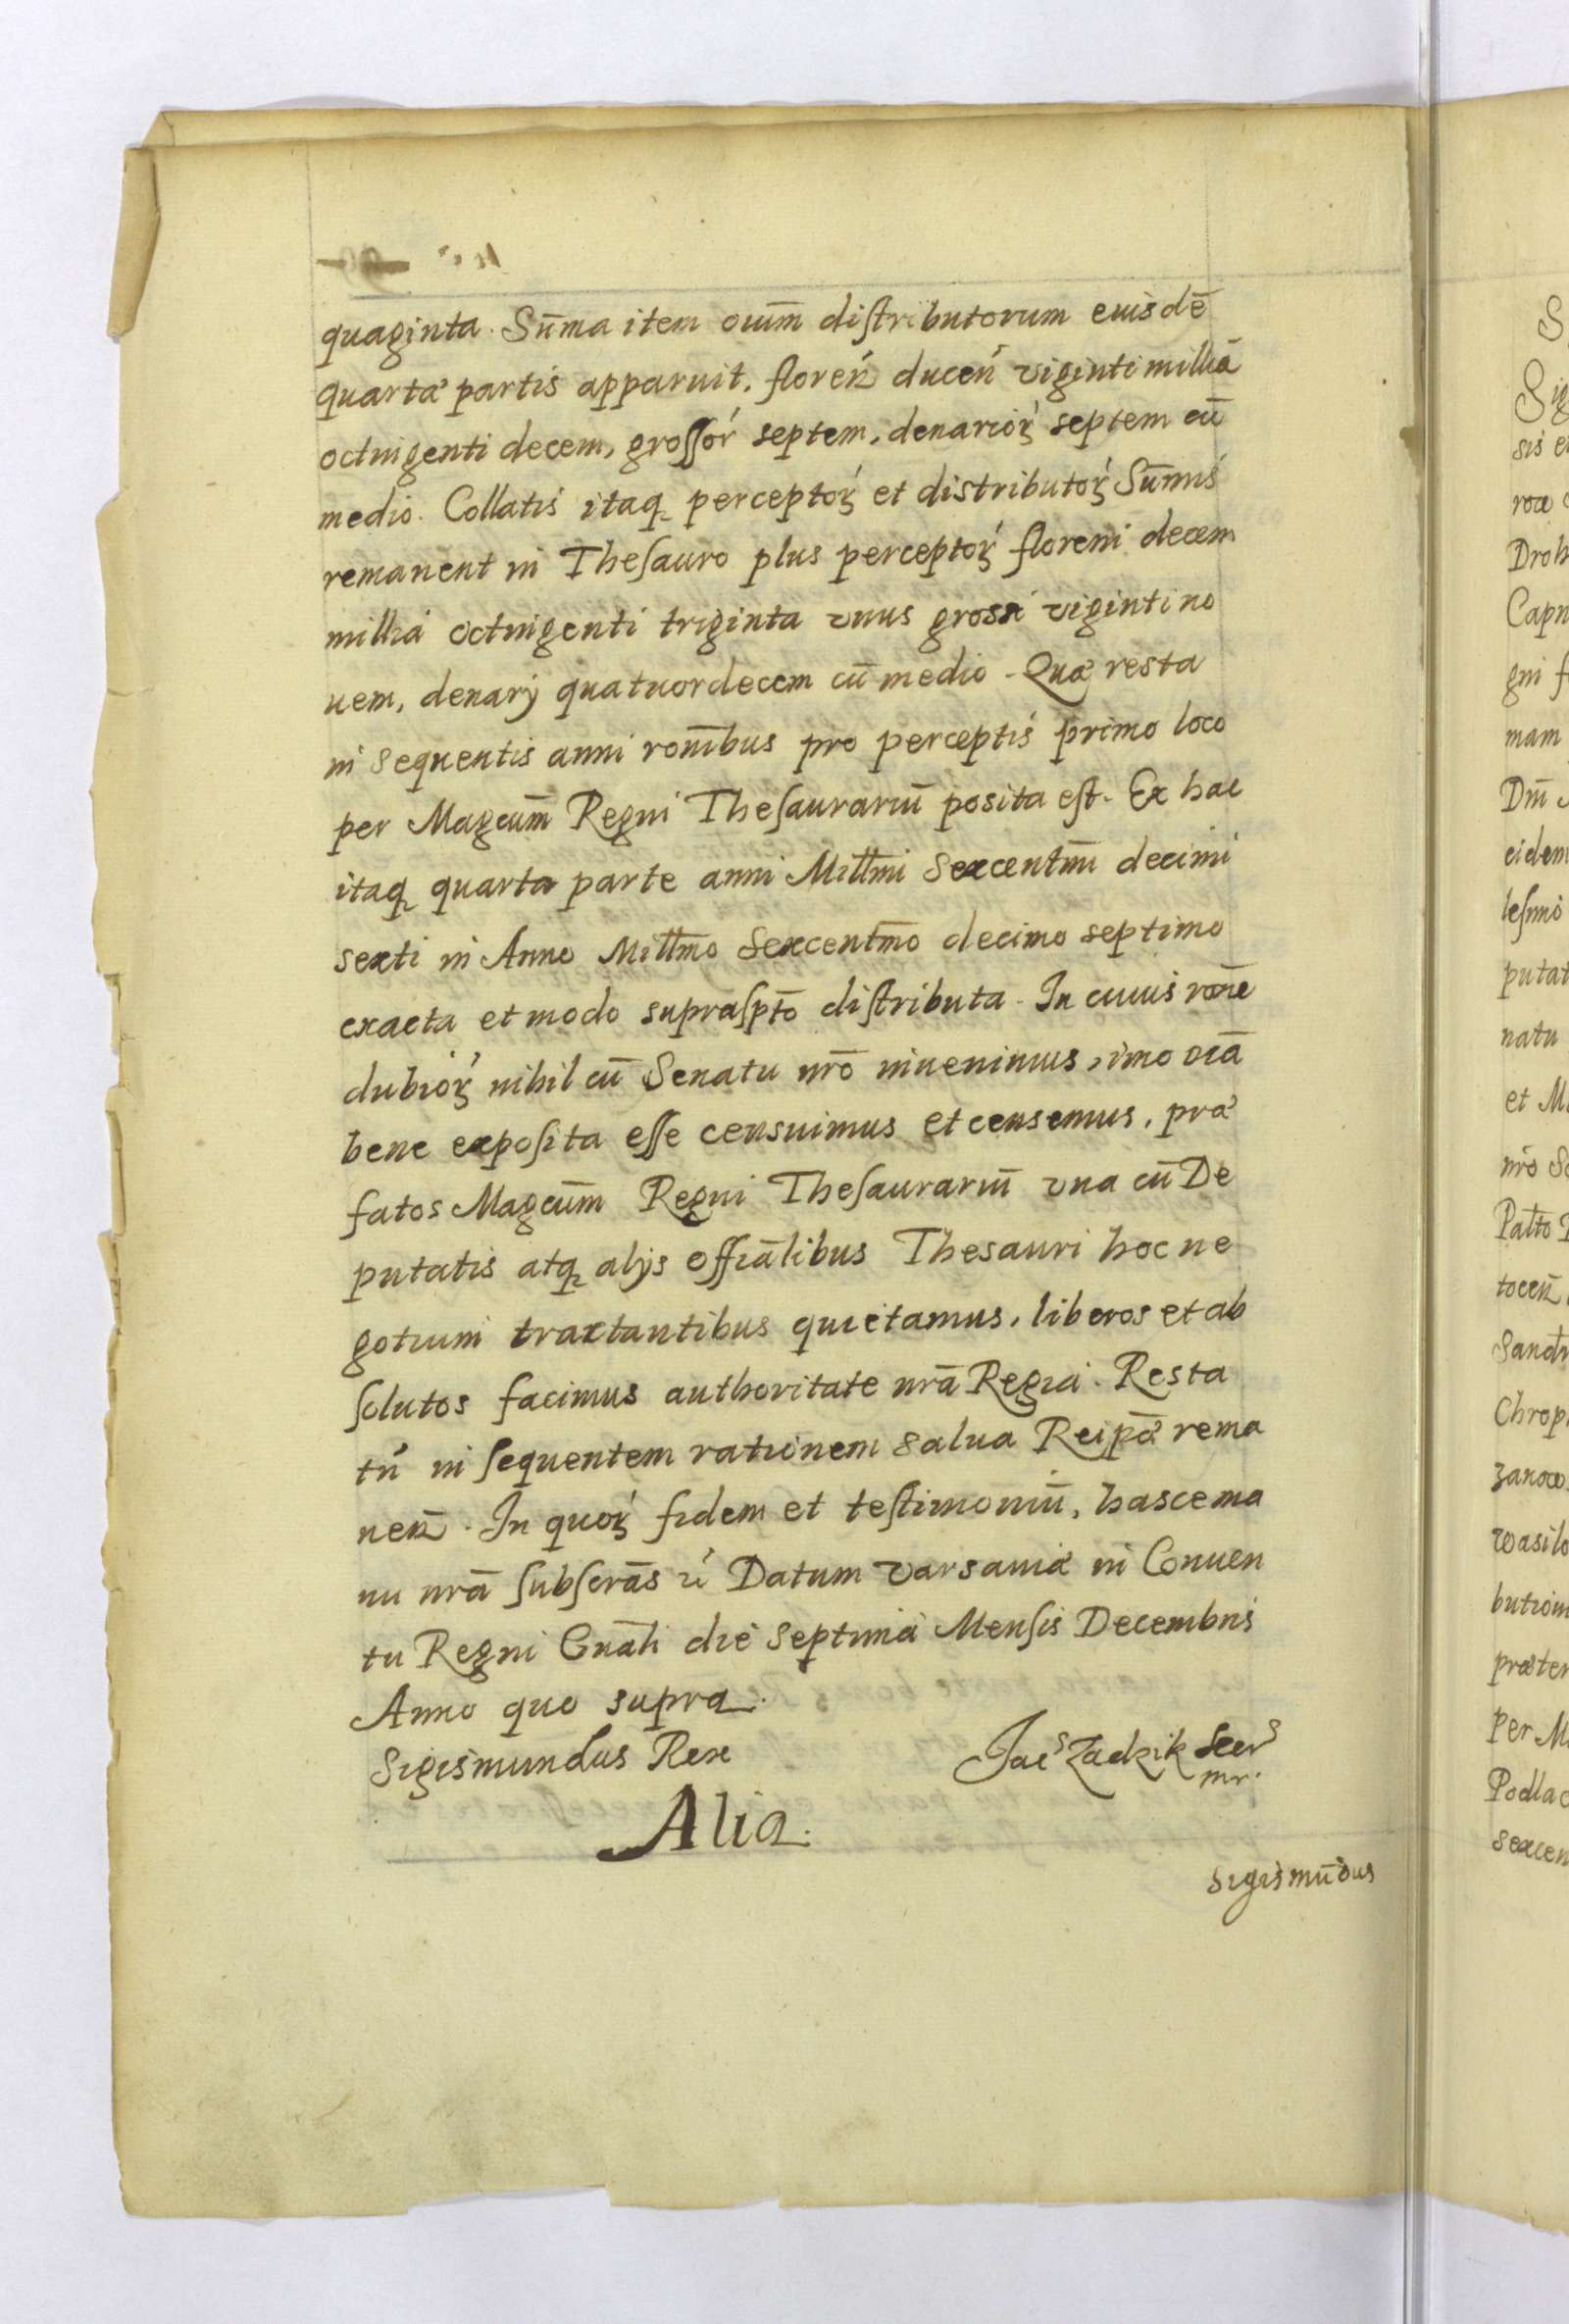 quaginta. Sūma item oium̄ distributorum eiusdē
quartæ partis apparuit, floreń duceń viginti millia
octuigenti decem, grossór septem, denarioꝝ septem cū
medio. Collatis itaq perceptoꝝ et distributoꝝ Sūmis
remanent in Thesauro plus perceptoꝝ floreni decem
millia octuigenti triginta vnus grossi viginti no
uem, denarij quatuordecem cū medio. Quæ resta
in sequentis anni roni̅bus pro perceptis primo loco
per Magcum̄ Regni Thesaurariū posita est. Ex hac
itaq quarta parte anni Millm̄i Sexcentm̄i decimi
sexti in Anno Millm̄o Sexcentm̄o decimo septimo
exacta et modo suprasptō distributa. In cuius rōne
dubioꝝ nihil cū Senatu nr̄o inuenimus, imo oīa
bene exposita esse censuimus et censemus, præ
fatos Magcum̄ Regni Thesaurariū vna cū De
putatis atq alijs offiālibus Thesauri hoc ne
gotium tractantibus quietamus, liberos et ab
solutos facimus authoritate nrā Regia. Resta
tń in sequentem rationem salua Reipǣ rema
neń. In quoꝝ fidem et testimoniū, hasce ma
nu nrā subscrās ń Datum Varsauiæ in Conuen
tu Regni Gnāli die Septima Mensis Decembris
Anno quo supra.
Sigismundus Rex Jacs Zadzik Secrs
mr.
Alia.
Sigismūdus